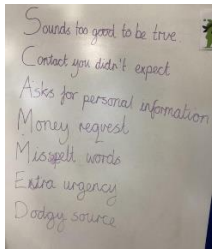 Sounds too good to be true
Contact you didn't expect
Asks for personal information
Money request
Misspelt words
Extra urgency
Dodgy source